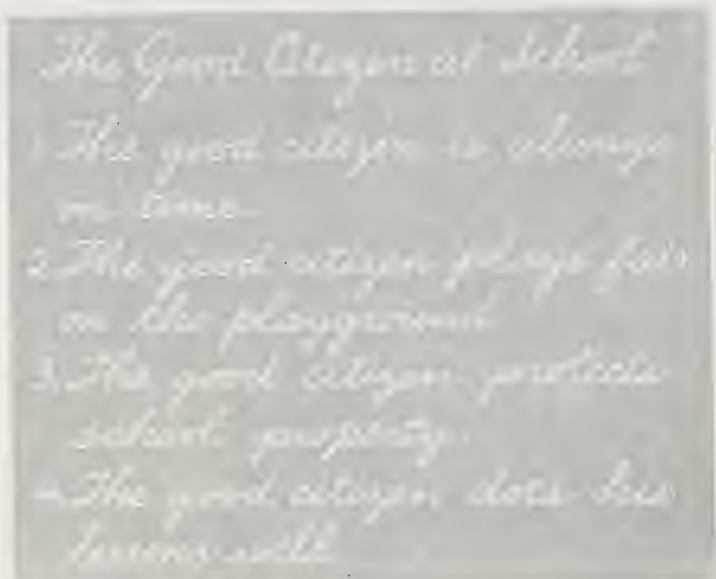 The Good Citizen at School
1. The good citizen is always
on time.
2. The good citizen plays fair
on the playground.
3. The good citizen protects
school property.
4. The good citizen does his
lessons well.